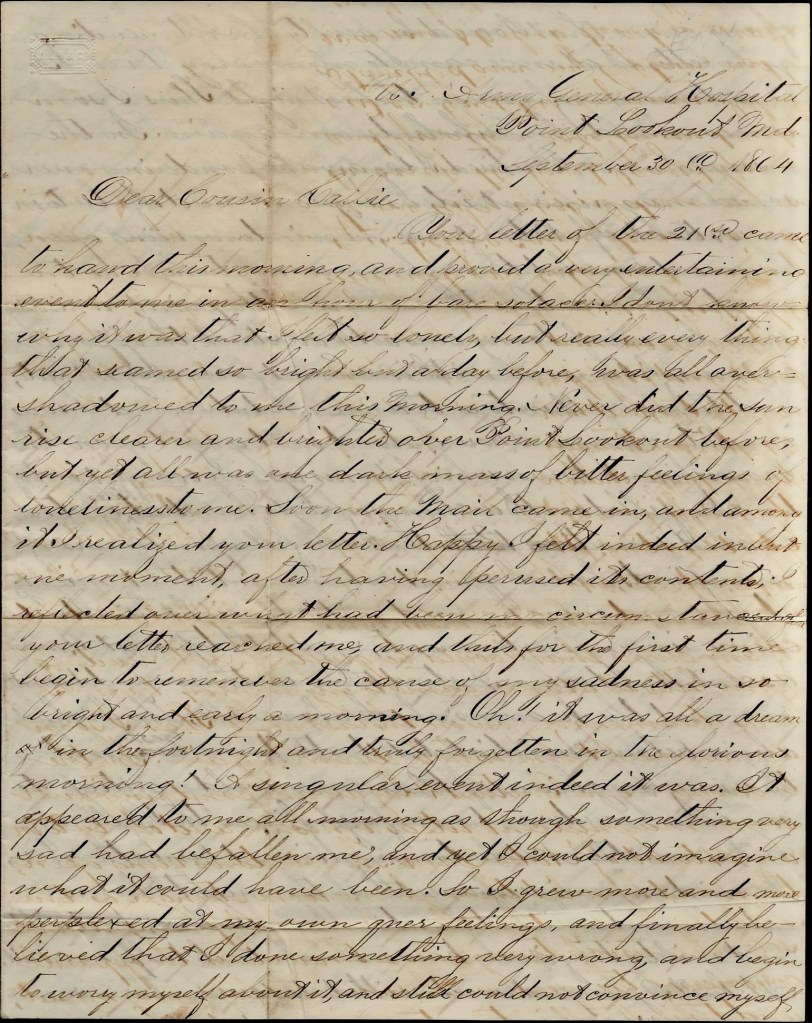 Army General Hospital
Point Lookout Md.
September 30 1864
Dear Cousin Callie
Your letter of the 21st came
to hand this morning, and proved a very entertaining
event to me in an hour of bare solace. I dont know
why it was that I felt so lonely, but really every thing
that seamed so bright but a day before, was all over-
shadowed to me this morning. Never did the sun
rise clearer and brighter over Point Lookout before,
but yet all was one dark mass of bitter feelings of
loneliness to me. Soon the Mail came in, and among
it I realized your letter. Happy I felt indeed in but
one moment, after having perused its contents, I
reflected over what had been my circumstances
your letter reached me, and thus for the first time
begin to remember the cause of my sadness in so
bright and early a morning. Oh! it was all a dream
in the fortnight and truly forgotten in the glorious
morning! A singular event indeed it was. It
appeared to me all morning as though something very
sad had befallen me, and yet I could not imagine
what it could have been. So I grew more and more
perplexed at my own quer feelings, and finally be-
lieved that I done something very wrong, and begin
to worry myself about it, and still could not convince myself,